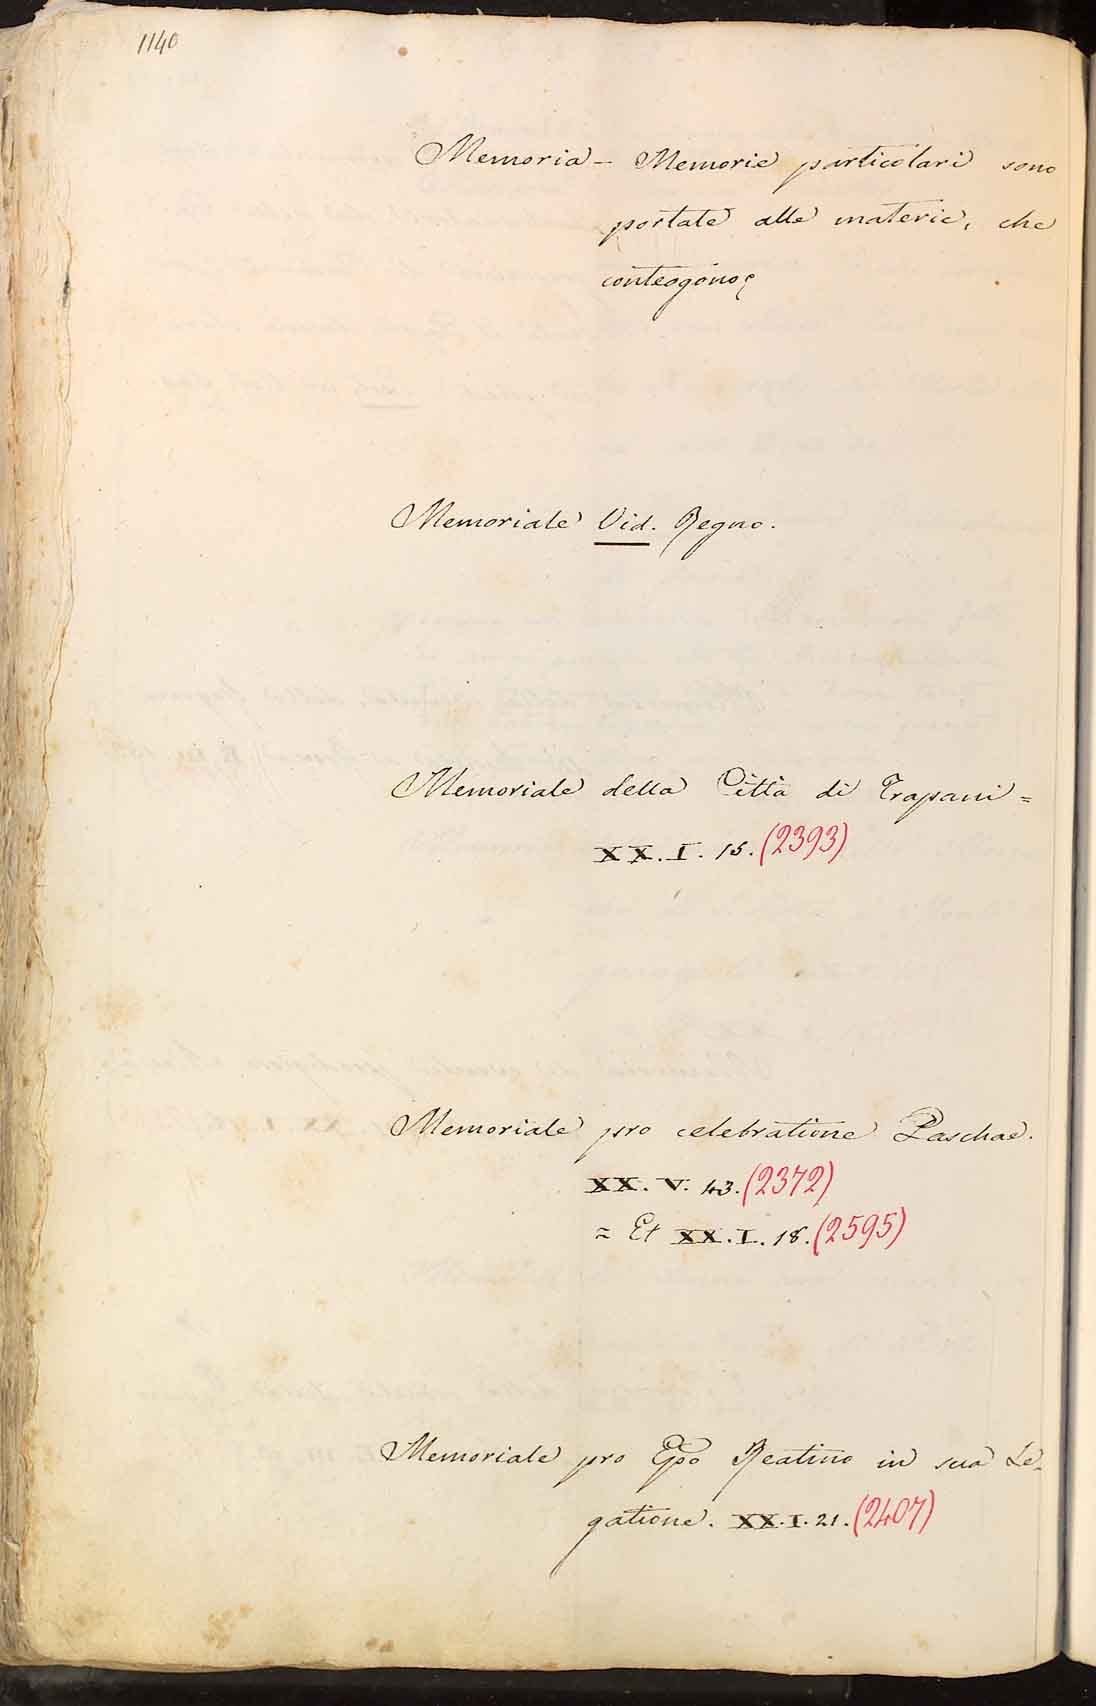 1140
Memoria - Memorie particolari sono
portate alle materie, che
conteogono
Memoriale Vid. Regno.
Memoriale della Città di Trapani =
XX. I. 15. (2393)
Memoriale pro celebratione Paschae.
XX. V. 43. (2372)
= Et XX. I. 18. (2595)
Memoriale pro Epo Reatino in sua Le-
gatione. XX. I. 21. (2407)